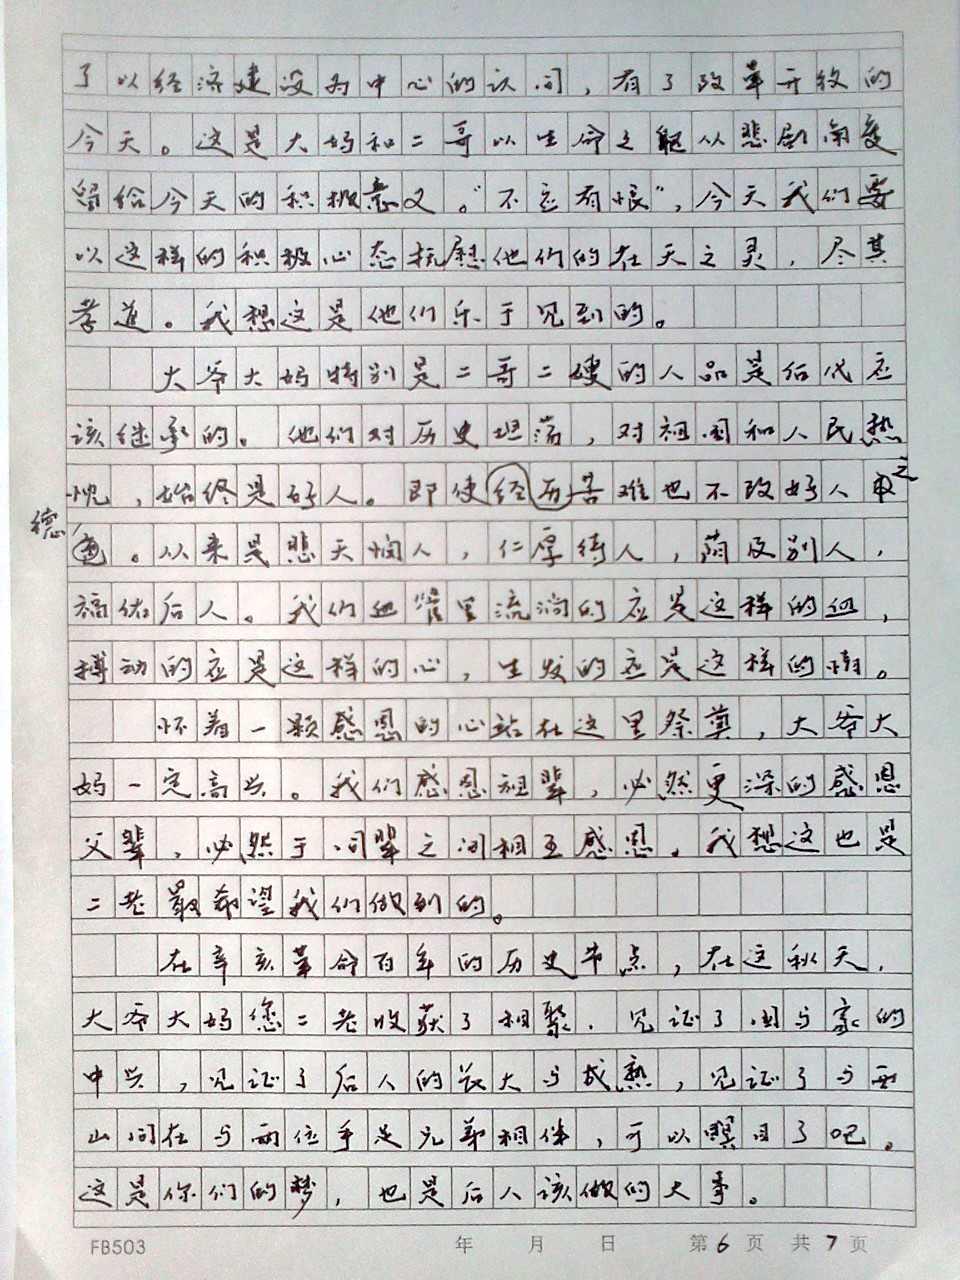 了以经济建设为中心的认同，有了改革开放的
今天。这是大妈和二哥以生命之躯从悲剧角度
留给今天的积极意义。“不应有恨”，今天我们要
以这样的积极心态抚慰他们的在天之灵，尽其
孝道。我想这是他们乐于见到的。
大爷大妈特别是二哥二嫂的人品是后代应
该继承的。他们对历史坦荡，对祖国和人民热
忱，始终是好人。即使经历苦难也不改好人之
德。从来是悲天悯人，仁厚待人，荫及别人，
福佑后人。我们血管里流淌的应是这样的血，
搏动的应是这样的心，生发的应是这样的情。
怀着一颗感恩的心站在这里祭奠，大爷大
妈一定高兴。我们感恩祖辈，必然更深的感恩
父辈，必然于同辈之间相互感恩。我想这也是
二老最希望我们做到的。
在辛亥革命百年的历史节点，在这秋天，
大爷大妈您二老收获了相聚，见证了国与家的
中兴，见证了后人的长大与成熟，见证了与西
山同在与两位手足兄弟相伴，可以瞑目了吧。
这是你们的梦，也是后人该做的大事。
FB503 年 月 日 第6页 共7页